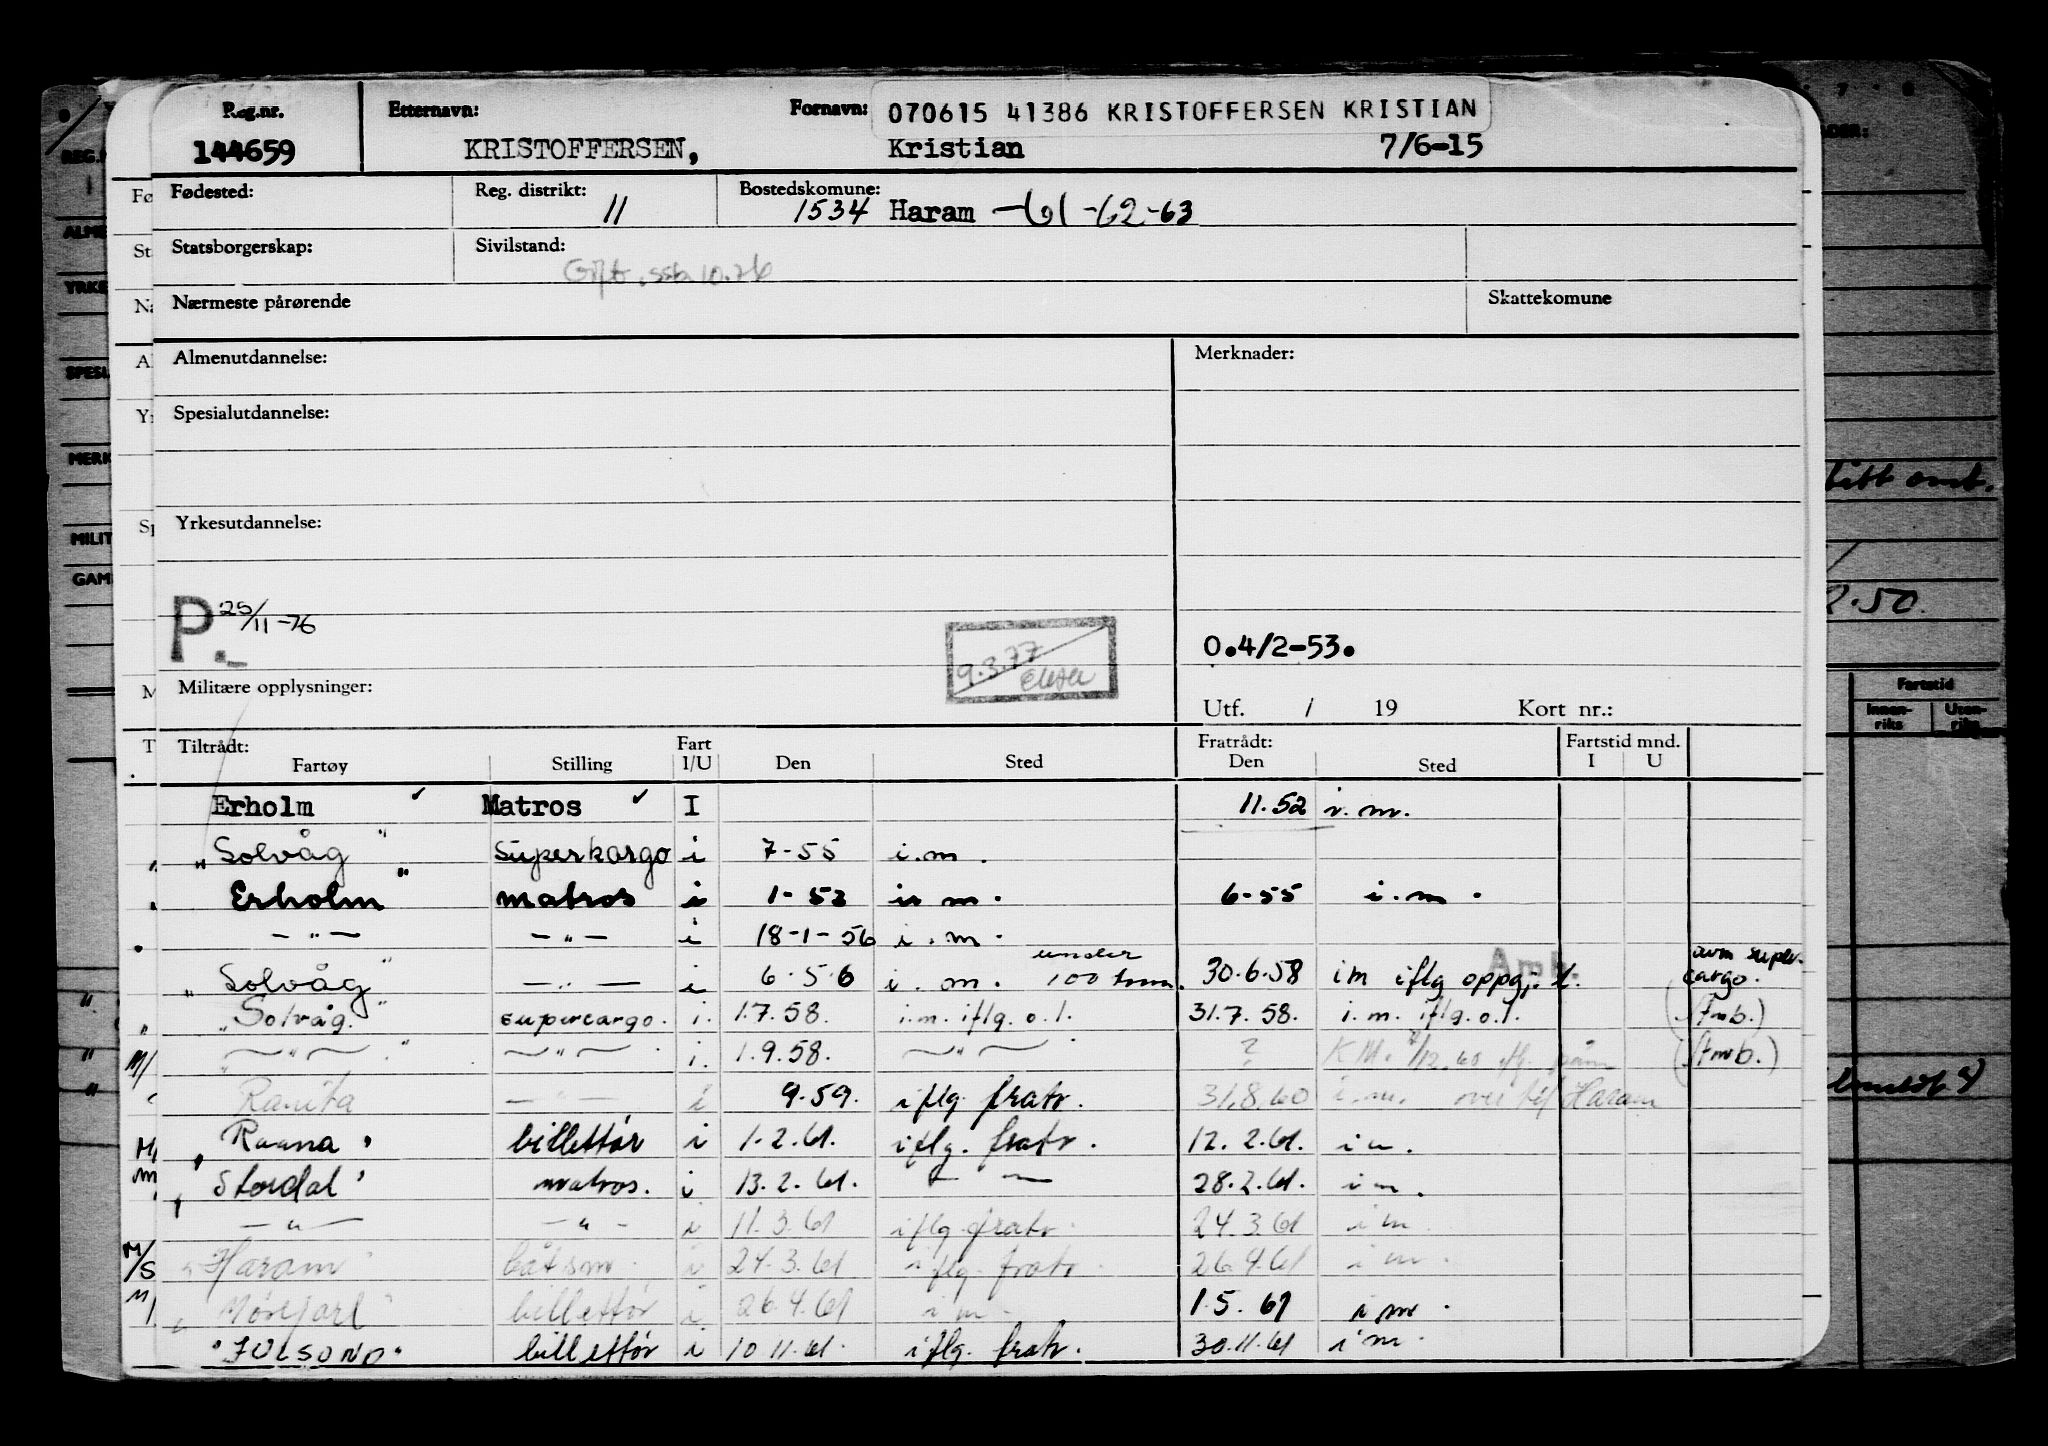 Reg.nr. Etternavn: Fornavn: 070615 41386 KRISTOFFERSEN KRISTIAN
144659 KRISTOFFERSEN, Kristian 7/6-15
Fødested: Reg. distrikt: 11 Bostedskomune: 1534 Haram -61-62-63
Statsborgerskap: Sivilstand: Gift. ssb 10.76
Nærmeste pårørende Skattekomune
Almenutdannelse: Merknader:
Spesialutdannelse:
Yrkesutdannelse:
P. 25/11-76
9.3.77
O.4/2-53.
Militære opplysninger:
Utf. / 19 Kort nr.:
Tiltrådt: Fart Fratrådt: Fartstid mnd.
Fartøy Stilling I/U Den Sted Den Sted I U
Erholm ✓ Matros ✓ I 11.52 i.m.
„Solvåg" Superkargo i 7-55 i.m.
Erholm" matros i 1-53 i. m. 6-55 i.m.
-"- -"- i 18-1-56 i.m.
„Solvåg" -"- i 6-56 i.m. under 100 tonn. 30.6.58 im iflg oppgj. Amb. avm super-cargo.
„Solvåg." supercargo. i. 1.7.58. i.m. iflg. o.l. 31.7.58. i.m. iflg.o.l. (Amb.)
-"- -"- i. 1.9.58. -"- ? (Amb.)
Ranita -"- i 9.59. iflg. fratr. 31.8.60 i.m. Haram
„Rauna" billettør i 1.2.61. iflg. fratr. 12.2.61. i m.
„Stordal" matros. i 13.2.61. - - 28.2.61. i m.
-"- -"- i 11.3.61 iflg. fratr. 24.3.61 i m.
M/S „Haram" båtsm. i 24.3.61 iflg. fratr. 26.4.61 i m.
„Mørejarl" billettør i 26.4.61 i m. 1.5.61 i m.
"JULSUND" billettør i 10.11.61. iflg. fratr. 30.11.61 i m.
REG.N
ALME
YRKE
SPESI
MERK
MILIT
GAM
2.50.
Fartstid
Innen-riks Uten-riks